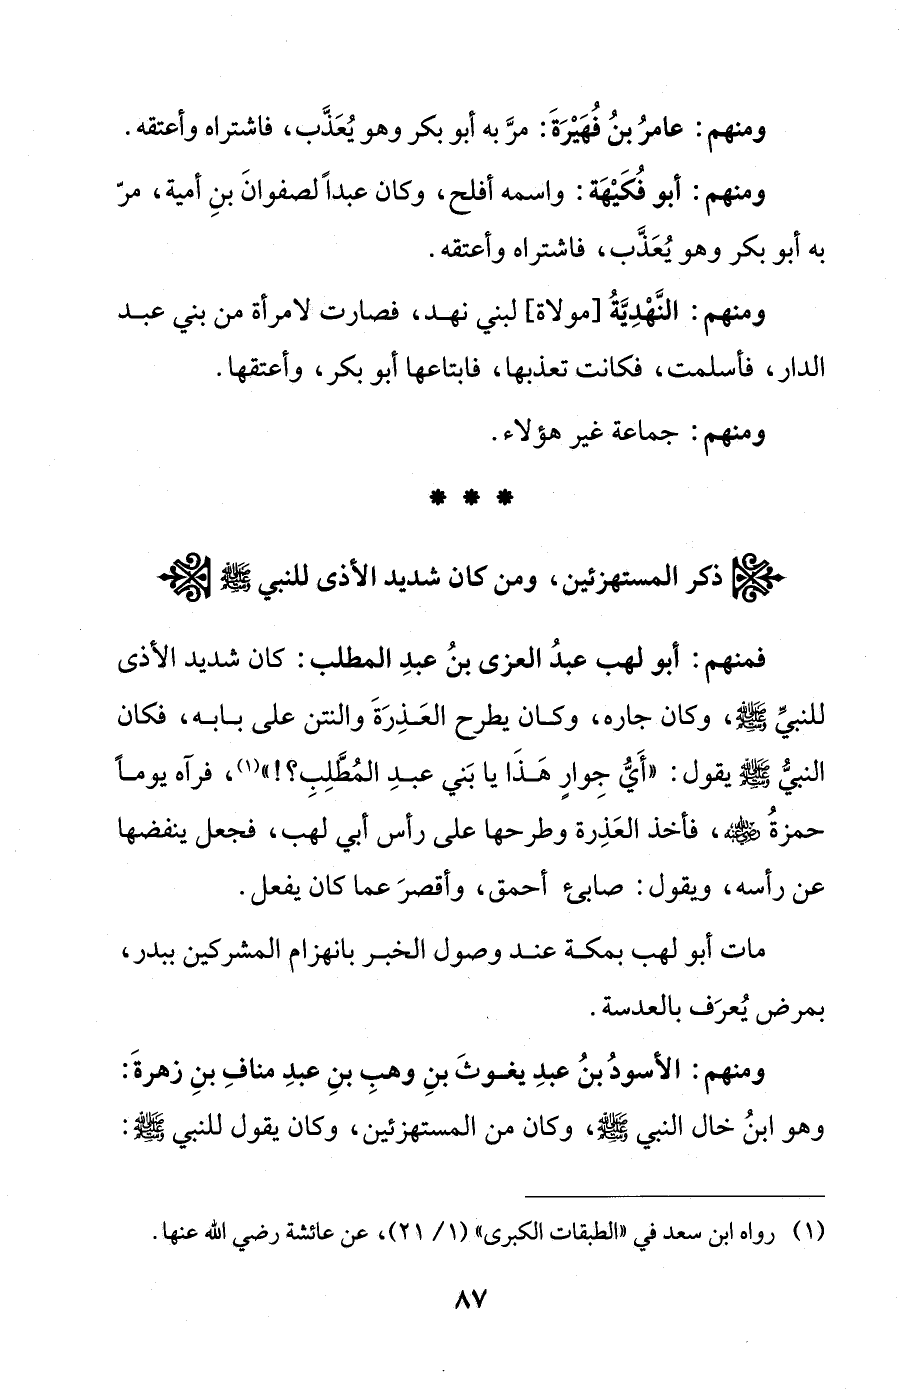 ومنهم: عامرُ بنُ فُهَيْرَةَ: مرَّ به أبو بكر وهو يُعَذَّب، فاشتراه وأعتقه.
ومنهم: أبو فُكَيْهَة: واسمه أفلح، وكان عبداً لصفوانَ بنِ أمية، مرّ
به أبو بكر وهو يُعَذَّب، فاشتراه وأعتقه.
ومنهم: النَّهْدِيَّةُ [مولاة] لبني نهد، فصارت لامرأة من بني عبد
الدار، فأسلمت، فكانت تعذبها، فابتاعها أبو بكر، وأعتقها.
ومنهم: جماعة غير هؤلاء.
* * *
ذكر المستهزئين، ومن كان شديد الأذى للنبي ﷺ
فمنهم: أبو لهب عبدُ العزى بنُ عبدِ المطلب: كان شديد الأذى
للنبيِّ ﷺ، وكان جاره، وكان يطرح العَذِرَةَ والنتن على بابه، فكان
النبيُّ ﷺ يقول: «أَيُّ جِوارٍ هَذَا يا بَني عبدِ المُطَّلِبِ؟!»(١)، فرآه يوماً
حمزةُ رضي الله عنه، فأخذ العَذِرة وطرحها على رأس أبي لهب، فجعل ينفضها
عن رأسه، ويقول: صابئ أحمق، وأقصرَ عما كان يفعل.
مات أبو لهب بمكة عند وصول الخبر بانهزام المشركين ببدر،
بمرض يُعرَف بالعدسة.
ومنهم: الأسودُ بنُ عبدِ يغوثَ بنِ وهبِ بنِ عبدِ منافِ بنِ زهرةَ:
وهو ابنُ خال النبي ﷺ، وكان من المستهزئين، وكان يقول للنبي ﷺ:
(١) رواه ابن سعد في «الطبقات الكبرى» (١/ ٢١)، عن عائشة رضي الله عنها.
٨٧